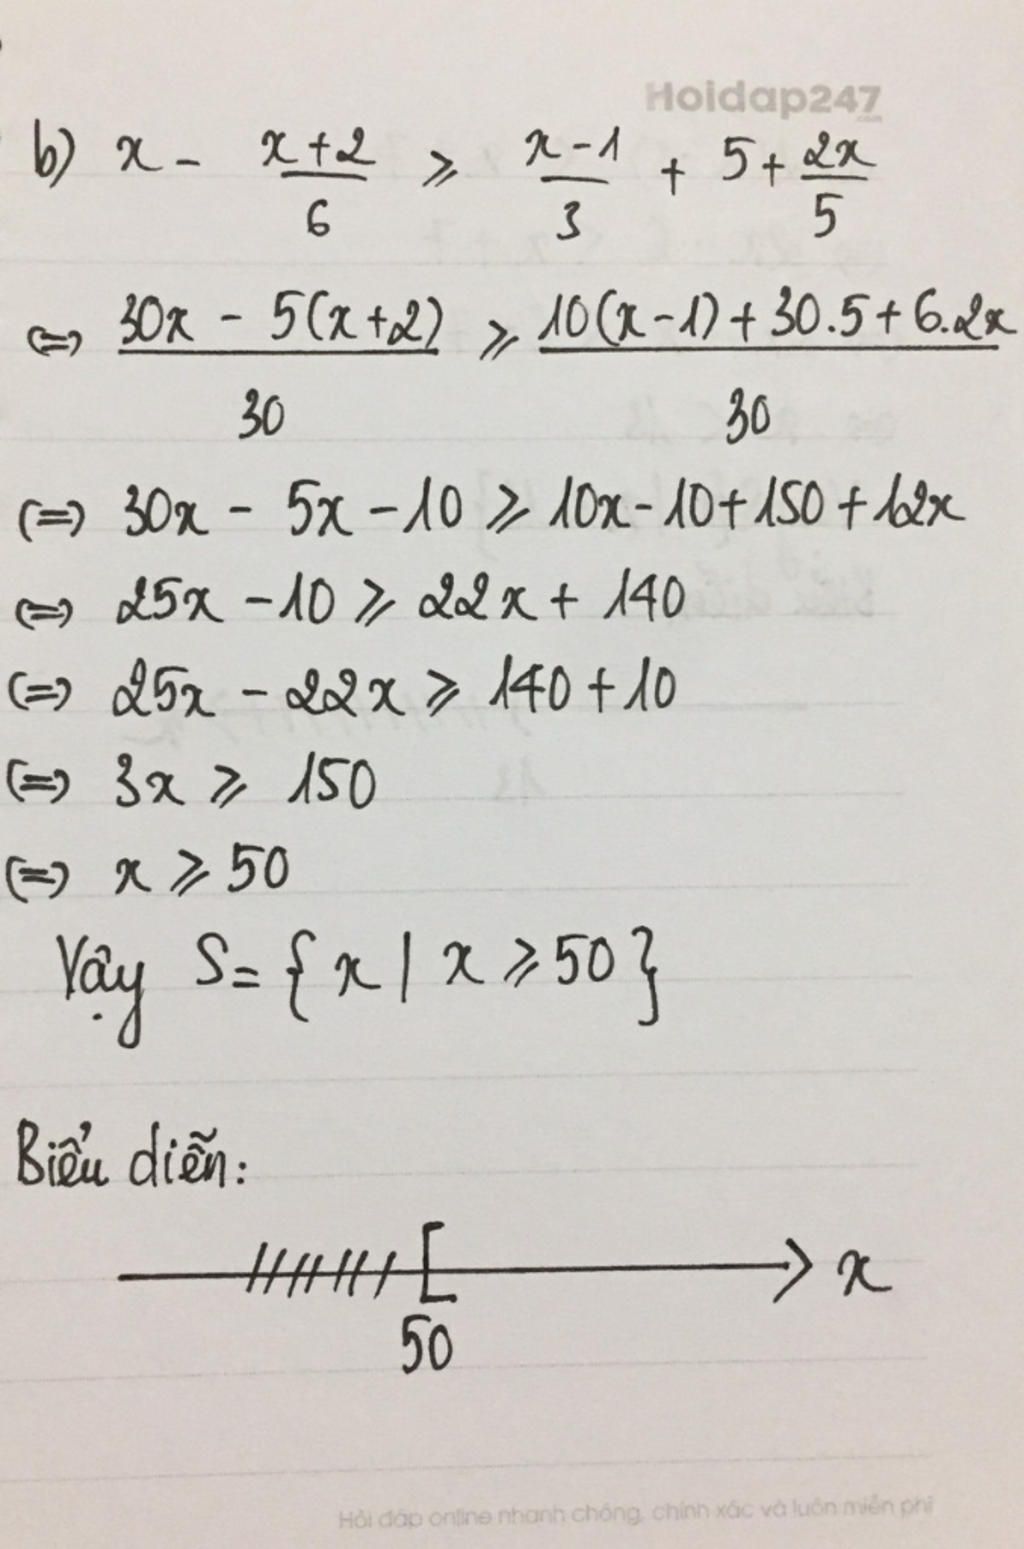 Hoidap247
.com
b) x - (x+2)/6 ⩾ (x-1)/3 + 5 + 2x/5
⇔ (30x - 5(x+2))/30 ⩾ (10(x-1) + 30.5 + 6.2x)/30
⇔ 30x - 5x - 10 ⩾ 10x - 10 + 150 + 12x
⇔ 25x - 10 ⩾ 22x + 140
⇔ 25x - 22x ⩾ 140 + 10
⇔ 3x ⩾ 150
⇔ x ⩾ 50
Vậy S = {x | x ⩾ 50}
Biểu diễn:
[ x
50
Hỏi đáp online nhanh chóng, chính xác và luôn miễn phí